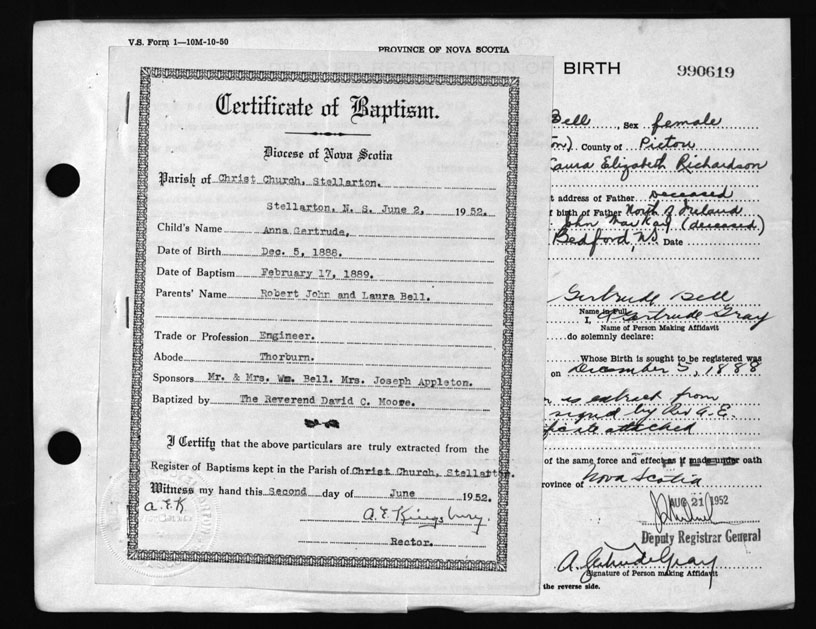 V.S. Form 1—10M-10-50
PROVINCE OF NOVA SCOTIA
BIRTH
990619
Certificate of Baptism.
Diocese of Nova Scotia
Parish of Christ Church, Stellarton.
Stellarton, N. S. June 2, 1952.
Child's Name Anna Gertrude,
Date of Birth Dec. 5, 1888.
Date of Baptism February 17, 1889.
Parents' Name Robert John and Laura Bell.
Trade or Profession Engineer.
Abode Thorburn.
Sponsors Mr. & Mrs. Wm. Bell. Mrs. Joseph Appleton.
Baptized by The Reverend David C. Moore.
I Certify that the above particulars are truly extracted from the
Register of Baptisms kept in the Parish of Christ Church, Stellarton.
Witness my hand this Second day of June 1952.
a.E.K
A. E. Kingsbury.
Rector.
Bell, Sex female
County of Pictou
Laura Elizabeth Richardson
address of Father deceased
birth of Father North of Ireland
John MacKay (deceased)
Bedford, N.S. Date
Gertrude Bell
Name in Full
I, A Gertrude Gray
Name of Person Making Affidavit
do solemnly declare:
Whose Birth is sought to be registered was
on December 5, 1888
is extract from
signed by Rev A. E.
attached
of the same force and effect as if made under oath
Province of Nova Scotia
AUG 21 1952
Deputy Registrar General
A. Gertrude Gray
Signature of Person making Affidavit
the reverse side.